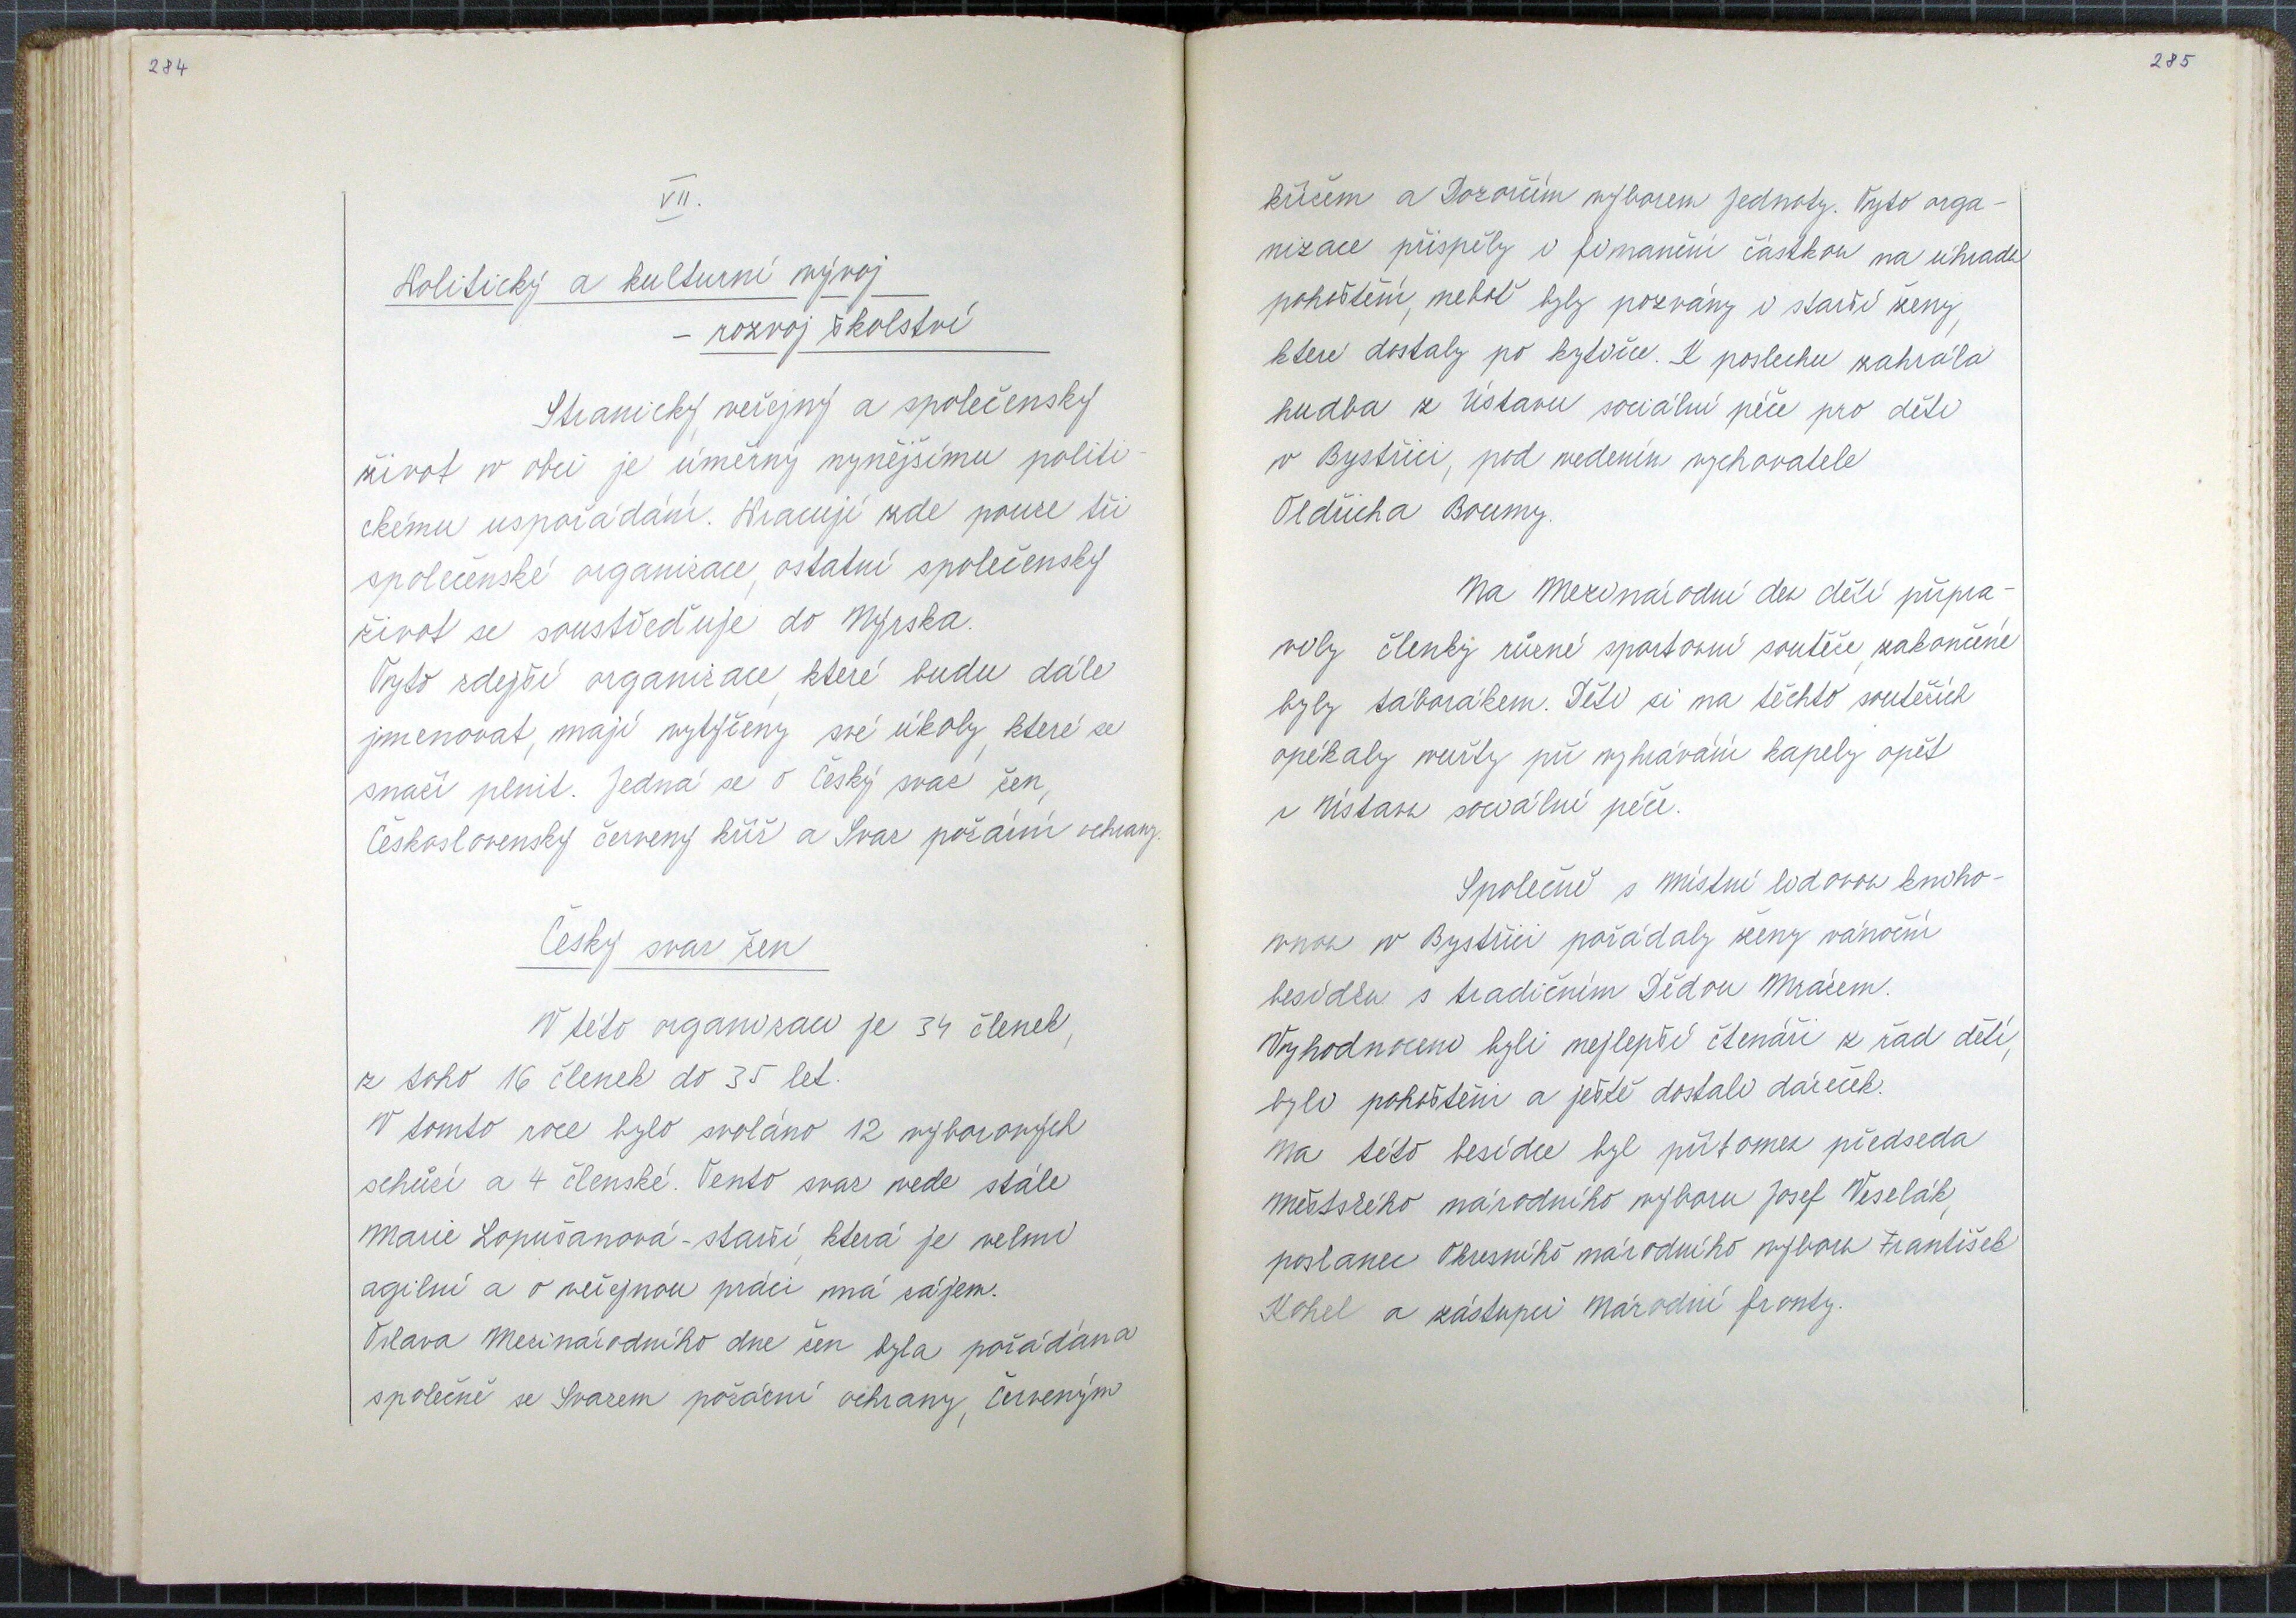 284
VII.
Politický a kulturní vývoj
- rozvoj školství
Stranický, veřejný a společenský
život v obci je úměrný nynějšímu politi-
ckému uspořádání. Pracují zde pouze tři
společenské organizace, ostatní společenský
život se soustřeďuje do Nýrska.
Tyto zdejší organizace, které budu dále
jmenovat, mají vytýčeny své úkoly, které se
snaží plnit. Jedná se o Český svaz žen,
Československý červený kříž a Svaz požární ochrany.
Český svaz žen
V této organizaci je 34 členek,
z toho 16 členek do 35 let.
V tomto roce bylo svoláno 12 výborových
schůzí a 4 členské. Tento svaz vede stále
Marie Lopušanová - starší, která je velmi
agilní a o veřejnou práci má zájem.
Oslava Mezinárodního dne žen byla pořádána
společně se Svazem požární ochrany, Červeným
285
křížem a Dozorčím výborem Jednoty. Tyto orga-
nizace přispěly i finanční částkou na úhradu
pohoštění, neboť byly pozvány i starší ženy,
které dostaly po kytičce. K poslechu zahrála
hudba z Ústavu sociální péče pro děti
v Bystřici, pod vedením vychovatele
Oldřicha Boumy.
Na Mezinárodní den dětí připra-
vily členky různé sportovní soutěže, zakončené
byly táborákem. Děti si na těchto soutěžích
opékaly vuřty při vyhrávání kapely opět
z Ústavu sociální péče.
Společně s Místní lidovou kniho-
vnou v Bystřici pořádaly ženy vánoční
besídku s tradičním Dědou Mrázem.
Vyhodnoceni byli nejlepší čtenáři z řad dětí,
byli pohoštěni a ještě dostali dáreček.
Na této besídce byl přítomen předseda
Městského národního výboru Josef Veselák,
poslanec Okresního národního výboru František
Kohel a zástupci Národní fronty.